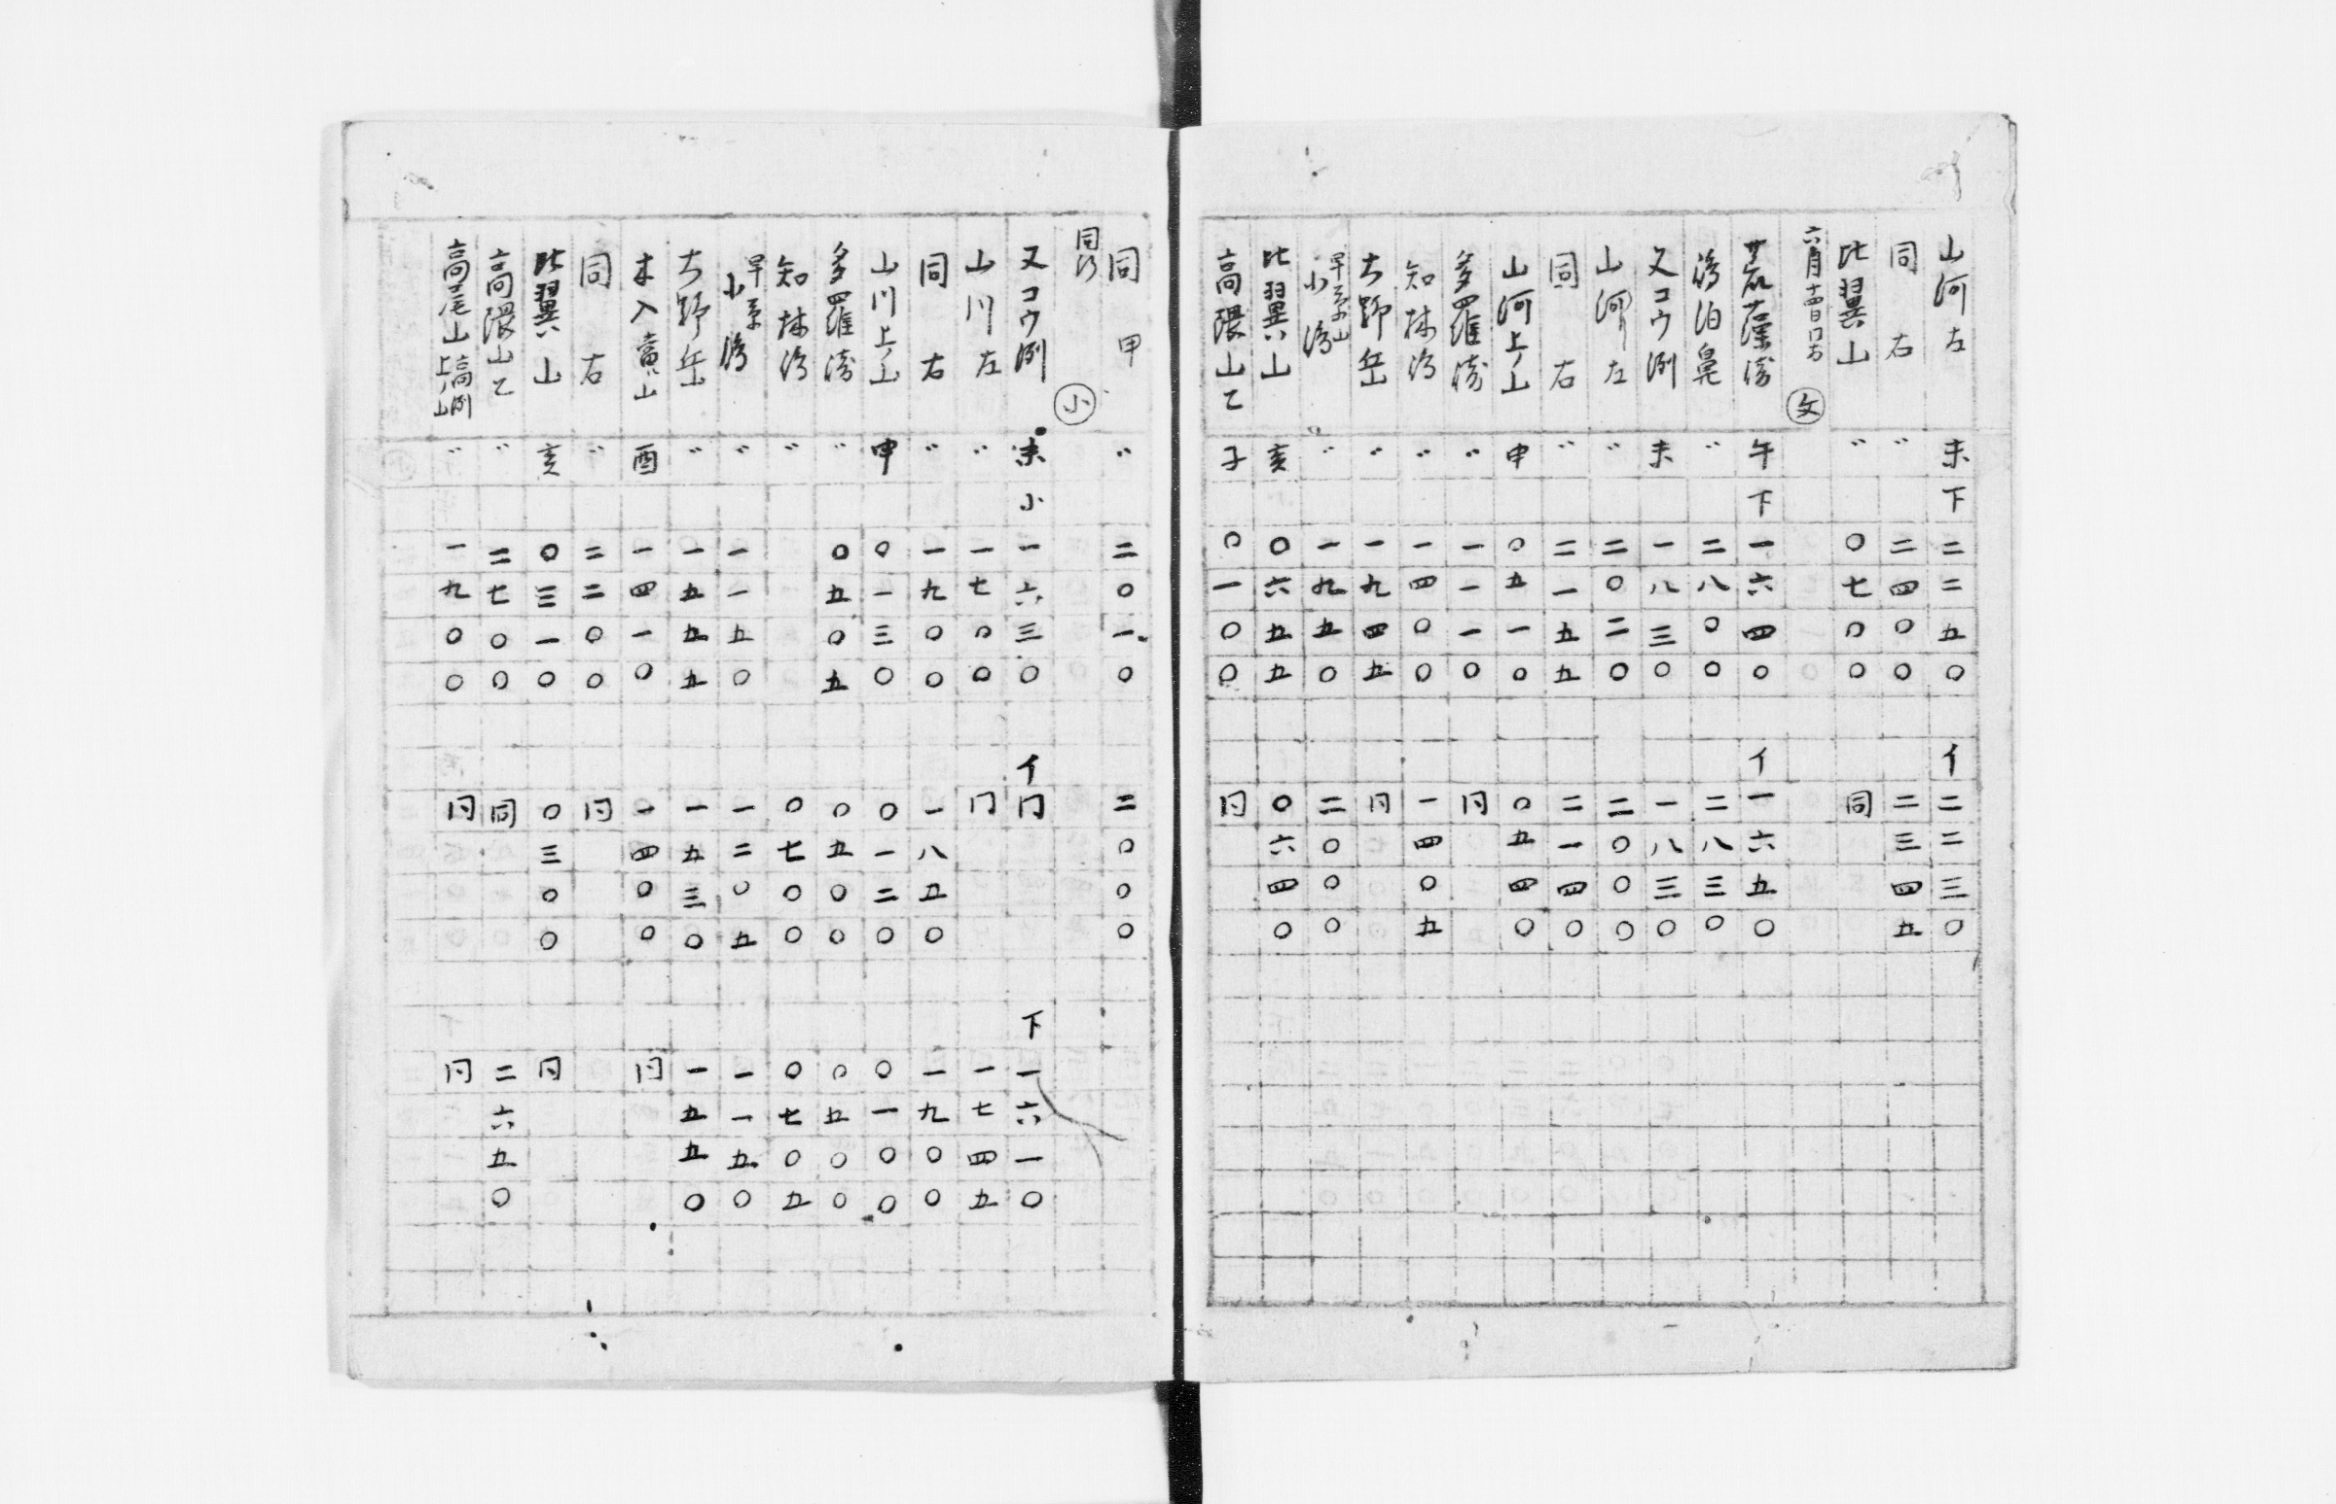 山河左 未 下 二二五〇 イ 二二三〇
同右 〃 二四〇〇 二三四五
比翼山 〃 〇七〇〇 同
六月十四日 文
午 下 一六四〇 イ 一六五〇
泊鼻 〃 二八〇〇 二八三〇
又コウ 未 一八三〇 一八三〇
山河左 〃 二〇二〇 二〇〇〇
同右 〃 二一五五 二一四〇
山河上ノ山 申 〇五一〇 〇五四〇
多羅 〃 一一一〇 同
知林 〃 一四〇〇 一四〇五
野岳 〃 一九四五 同
小 〃 一九五〇 二〇〇〇
比翼山 亥 〇六五五 〇六四〇
高隈山乙 子 〇一〇〇 同
同甲 〃 二〇一〇 二〇〇〇
同 小
又コウ 未 小 一六三〇 イ 同 下 一六一〇
山川左 〃 一七〇〇 同 一七四五
同右 〃 一九〇〇 一八五〇 一九〇〇
山川上ノ山 申 〇一三〇 〇一二〇 〇一〇〇
多羅 〃 〇五〇五 〇五〇〇 〇五〇〇
知林 〃 〇七〇〇 〇七〇五
小 〃 一一五〇 一二〇五 一一五〇
野岳 〃 一五五五 一五三〇 一五五〇
木入 山 酉 一四一〇 一四〇〇 同
同右 〃 二二〇〇 同
比翼山 亥 〇三一〇 〇三〇〇 同
高隈山乙 〃 二七〇〇 同 二六五〇
高尾山 高 上ノ山 〃 一九〇〇 同 同